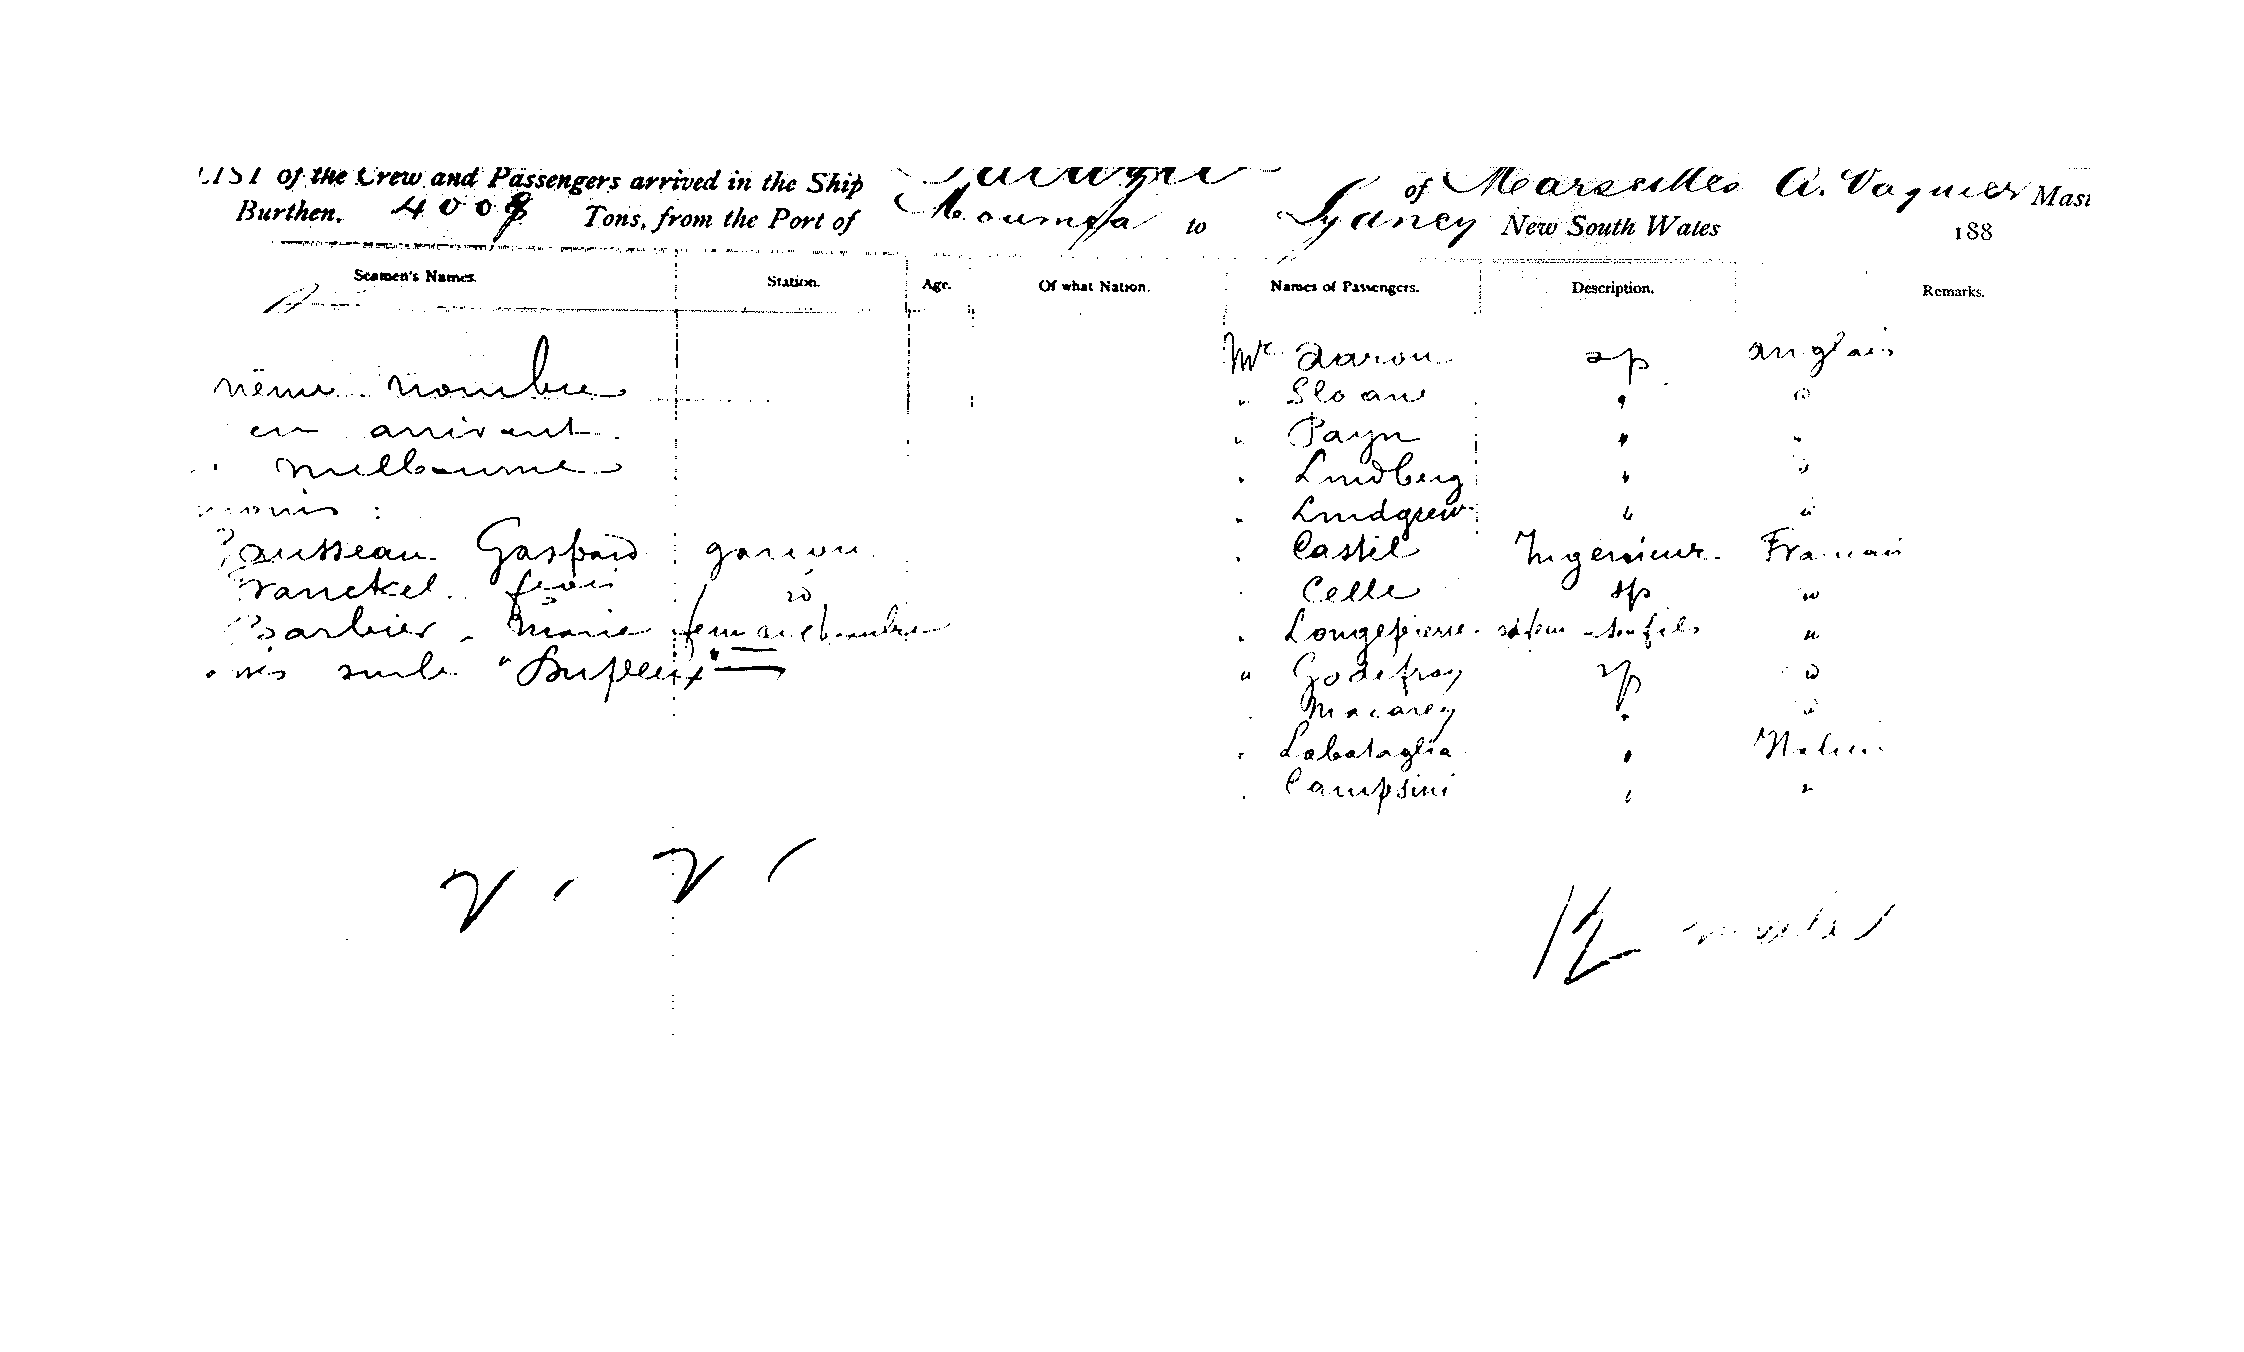 LIST of the Crew and Passengers arrived in the Ship of Marseilles A. Vaquier Mast
Burthen, 4008 Tons, from the Port of Noumea to Sydney New South Wales 188
Seamen's Names. Station. Age. Of what Nation. Names of Passengers. Description. Remarks.
Mr Aaron sp anglais
même nombre " Sloane " "
en arrivant " Payn " "
Melbourne " Lindberg " "
moins : " Lindgrew " "
Gaspard garcon " Castil Ingenieur Francais
Franckel id " Celle sp "
Barbier Marie fem de chambre " Longepierre "
sur le "Dupleix" " Godefroy sp "
" Macarey " "
" Labataglia " Italien
" Campsini " "
12